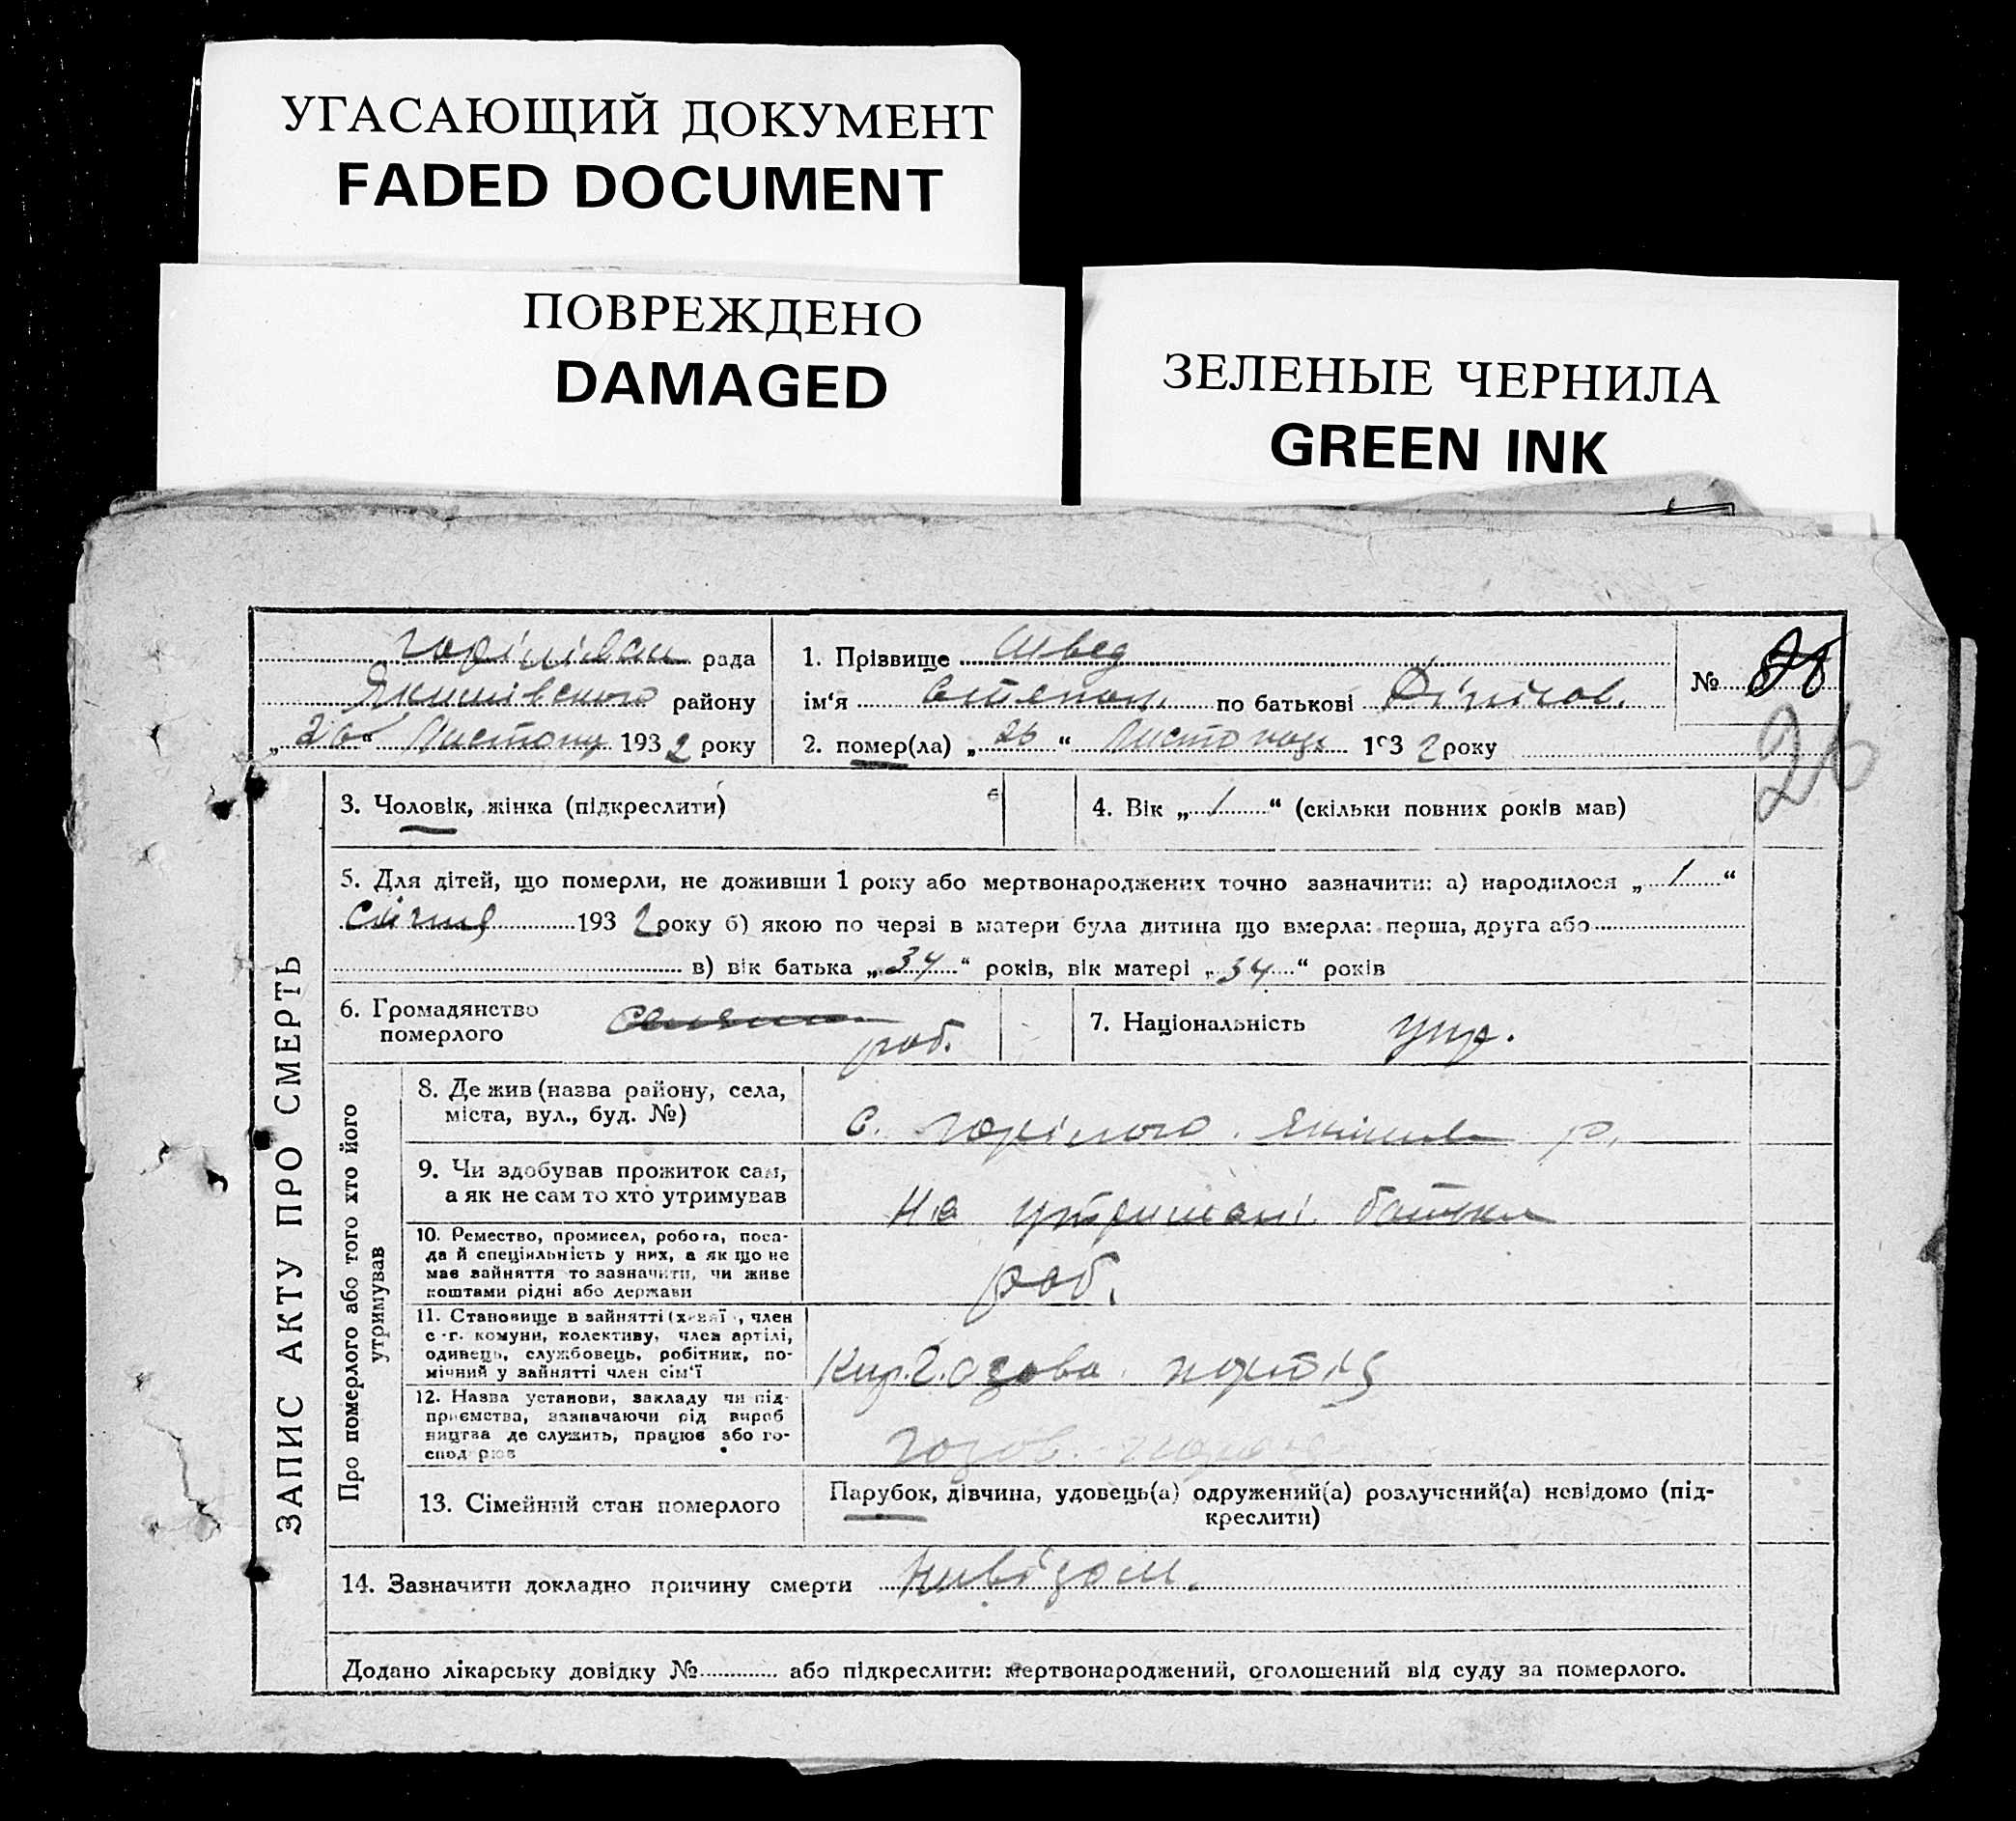 УГАСАЮЩИЙ ДОКУМЕНТ
FADED DOCUMENT
ПОВРЕЖДЕНО
DAMAGED
ЗЕЛЕНЫЕ ЧЕРНИЛА
GREEN INK
рада
району
„ 26 “ 1932 року
1. Прізвище Швед
ім'я Степан по батькові
2. помер(ла) „ 26 “ Листопада 1932 року
№
26
ЗАПИС АКТУ ПРО СМЕРТЬ
3. Чоловік, жінка (підкреслити)
4. Вік „ 1 “ (скільки повних років мав)
5. Для дітей, що померли, не доживши 1 року або мертвонароджених точно зазначити: а) народилося „ 1 “
січня 1932 року б) якою по черзі в матери була дитина що вмерла: перша, друга або
в) вік батька „ 34 “ років, вік матері „ 34 “ років
6. Громадянство
померлого
роб.
7. Національність укр.
Про померлого або того хто його
утримував
8. Де жив (назва району, села,
міста, вул., буд. №)
с. р.
9. Чи здобував прожиток сам,
а як не сам то хто утримував
На утримані батька
10. Ремество, промисел, робота, поса-
да й спеціяльність у них, а як що не
має зайняття то зазначити, чи живе
коштами рідні або держави
роб.
11. Становище в зайнятті (х , член
с.-г. комуни, колективу, член артілі,
одивець, службовець, робітник, по-
мічний у зайнятті член сім'ї
12. Назва установи, закладу чи під-
приємства, зазначаючи рід вироб
ництва де служить, працює або го-
спод рює
13. Сімейний стан померлого
Парубок, дівчина, удовець(а) одружений(а) розлучений(а) невідомо (під-
креслити)
14. Зазначити докладно причину смерти
Додано лікарську довідку № або підкреслити: мертвонароджений, оголошений від суду за померлого.